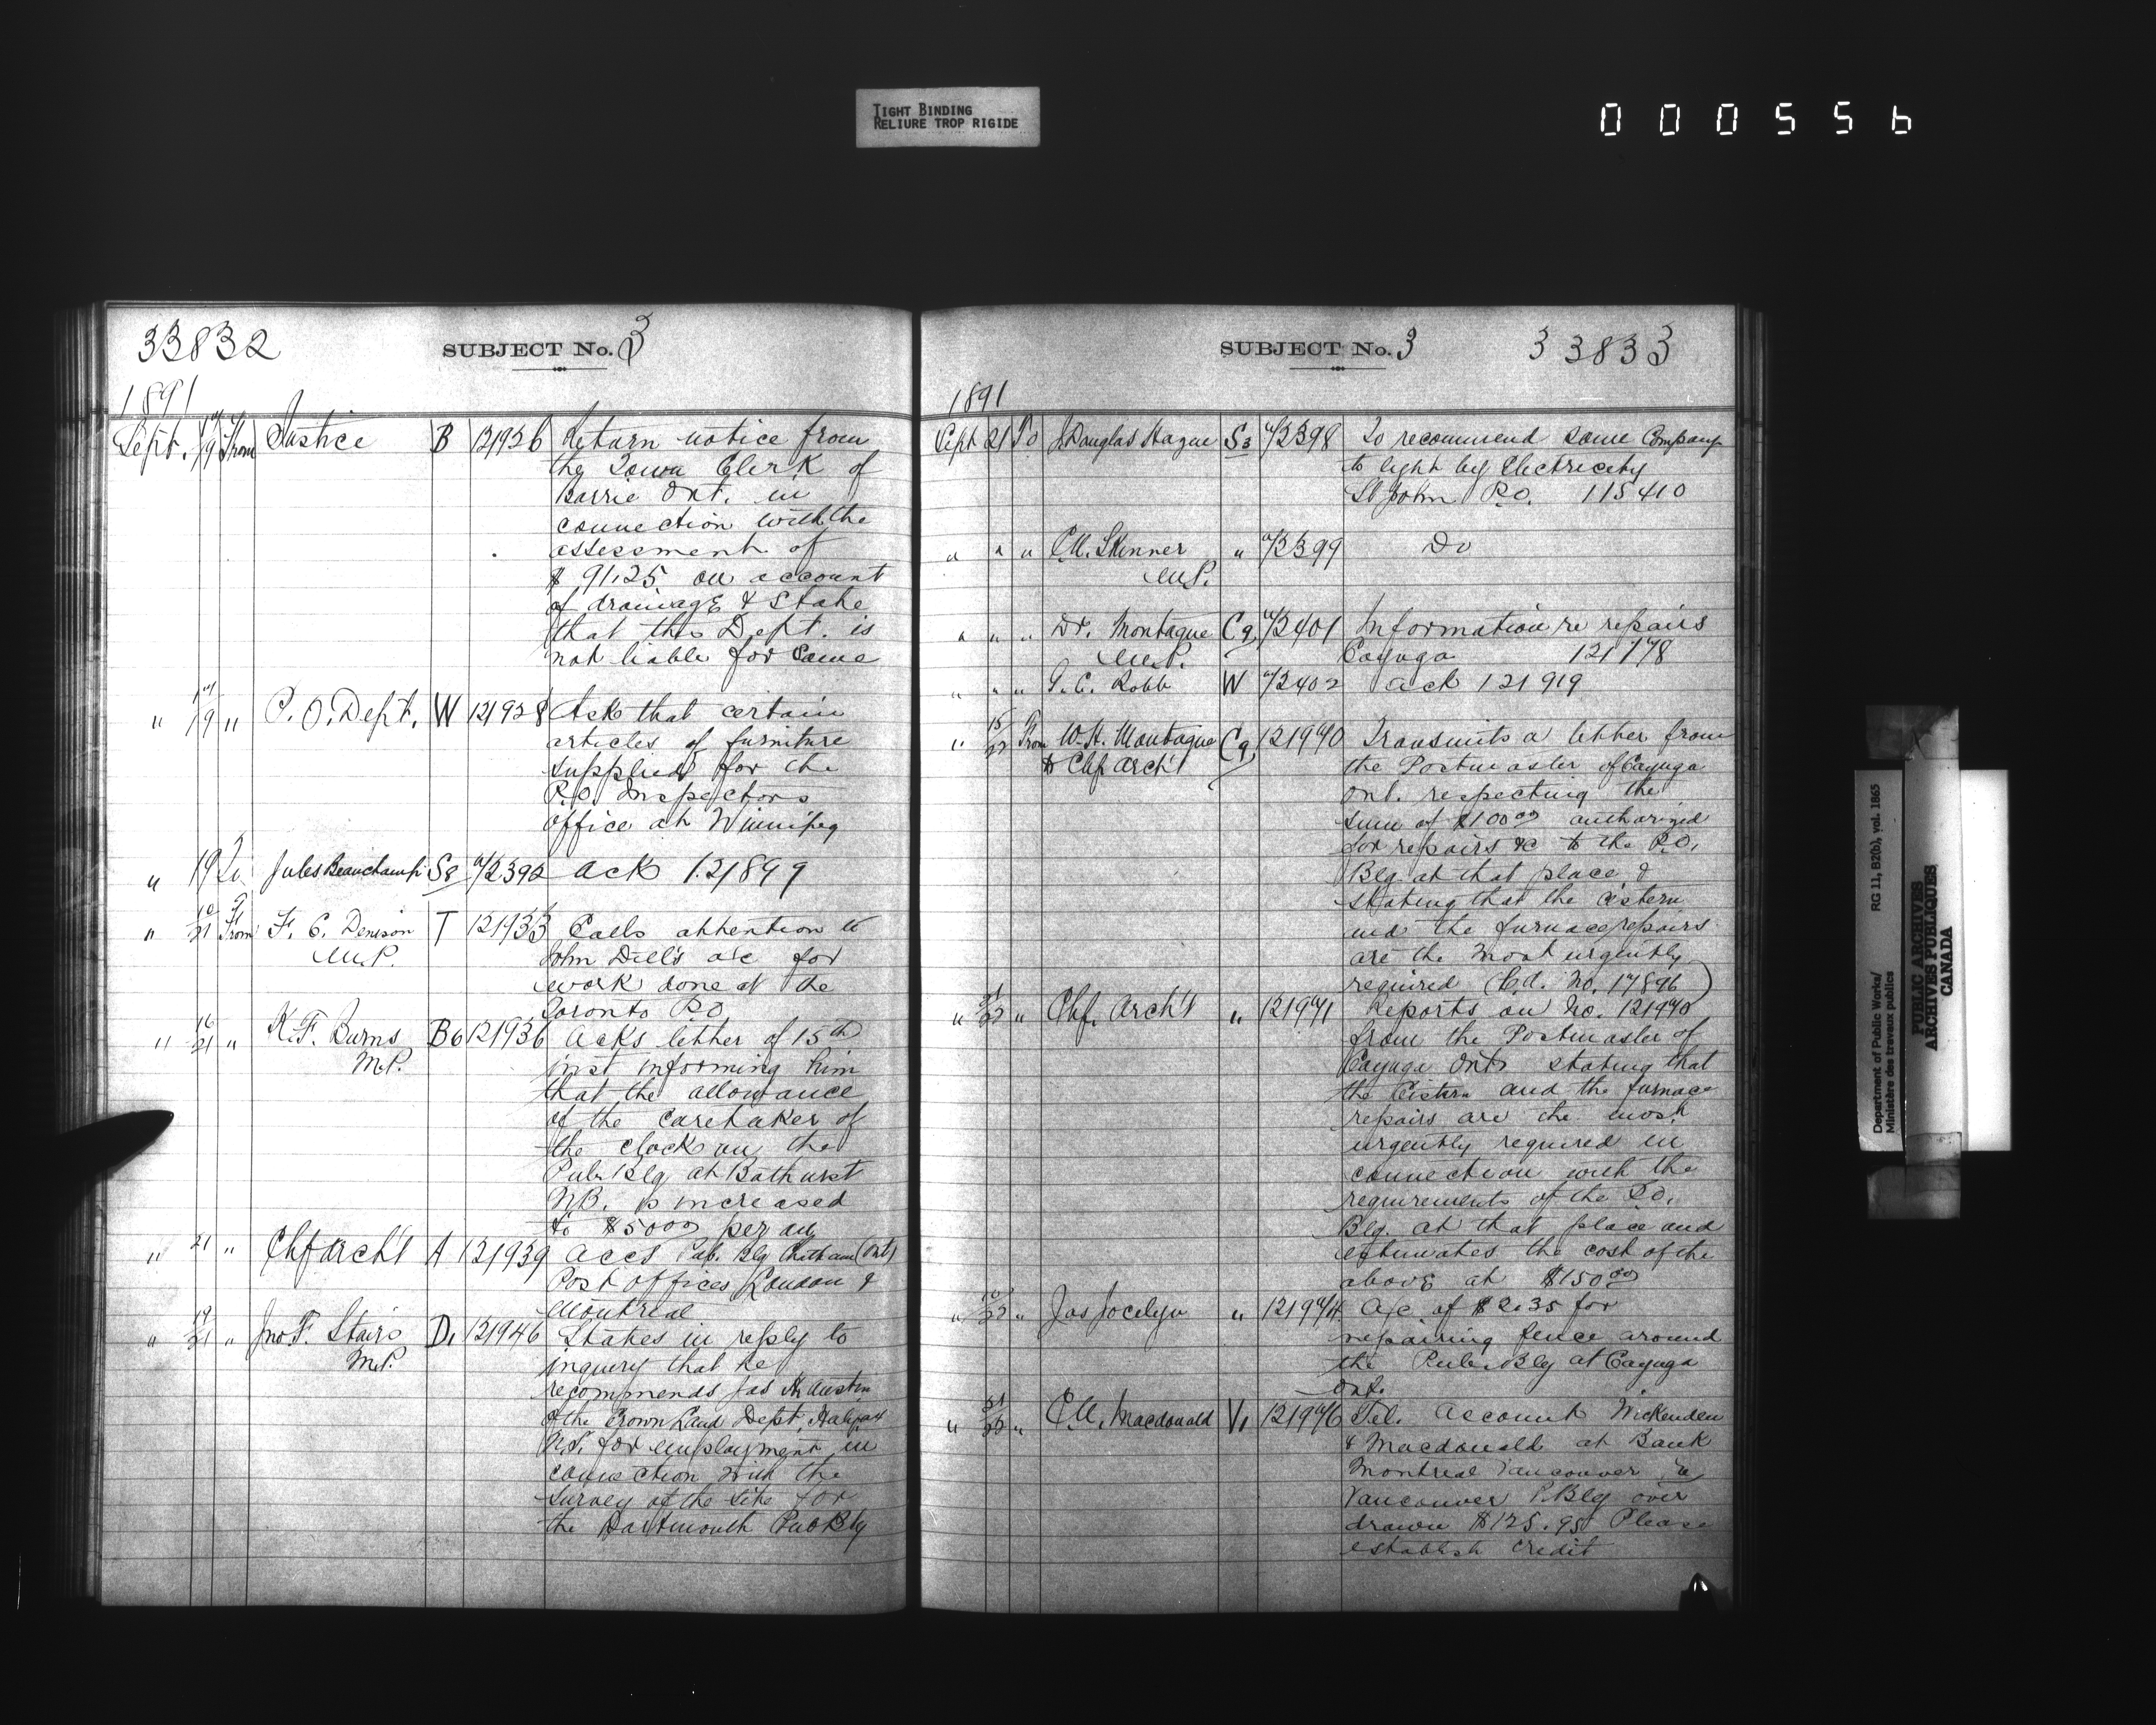 TIGHT BINDING
RELIURE TROP RIGIDE
000556
33832
SUBJECT No. 3
1891
Sept. 17/19 From Justice B 121926 Return notice from
the Town Clerk of
Barrie Ont. in
connection with the
assessment of
$91.25 on account
of drainage & State
that this Dept. is
not liable for same
" 17/19 " P. O. Dept. W 121928 Ask that certain
articles of furniture
supplied for the
P.O. Inspectors
office at Winnipeg
" 19 To Jules Beauchamp S8 a/2392 ack 121899
" 10/21 From F. C. Denison T 121933 Calls attention to
M.P. John Dill's a/c for
work done at the
Toronto P.O.
" 16/21 " K. F. Burns B6 121936 Acks letter of 15th
M.P. inst informing him
that the allowance
of the caretaker of
the clock on the
Pub. Blg at Bathurst
N.B. is increased
to $50 00 per an
" 21 " Chf Arch't A 121939 Accs Pub. Blg Chatham (Ont)
Post offices London &
Montreal
" 19/21 " Jno F. Stairs D1 121946 States in reply to
M.P. inquiry that he
recommends Jas H. Austin
of the Crown Land Dept, Halifax
N.S. for employment in
connection with the
survey of the site for
the Dartmouth Pub Blg
SUBJECT No. 3
33833
1891
Sept 21 To J. Douglas Hague S3 a/2398 To recommend some Company
to light by Electricity
St John P.O. 115410
" " " C.N. Skinner " a/2399 Do
M.P.
" " " Dr. Montague Cg a/2401 Information re repairs
M.P. Cayuga 121778
" " " G. C. Robb W a/2402 ack 121919
" 15/22 From W. H. Montague Cg 121970 Transmits a letter from
to Chf Arch't the Postmaster of Cayuga
Ont. respecting the
sum of $100 00 authorized
for repairs &c to the P.O.
Blg. at that place &
stating that the cistern
and the furnace repairs
are the most urgently
required (Cd. No. 17896)
" 21/22 " Chf. Arch't " 121971 Reports on No. 121970
from the Postmaster of
Cayuga Ont stating that
the Cistern and the furnace
repairs are the most
urgently required in
connection with the
requirements of the P.O.
Blg. at that place and
estimates the cost of the
above at $150 00
" 22 " Jas Jocelyn " 121974 A/c of $2.35 for
repairing fence around
the Pub. Blg at Cayuga
Ont.
" 21/22 " Macdonald V1 121976 Tel. account Wickenden
& Macdonald at Bank
Montreal Vancouver
Vancouver P. Blg over
drawn $125.95 Please
establish credit
Department of Public Works/ RG 11, B2(b), vol. 1865
Ministère des travaux publics
PUBLIC ARCHIVES
ARCHIVES PUBLIQUES
CANADA